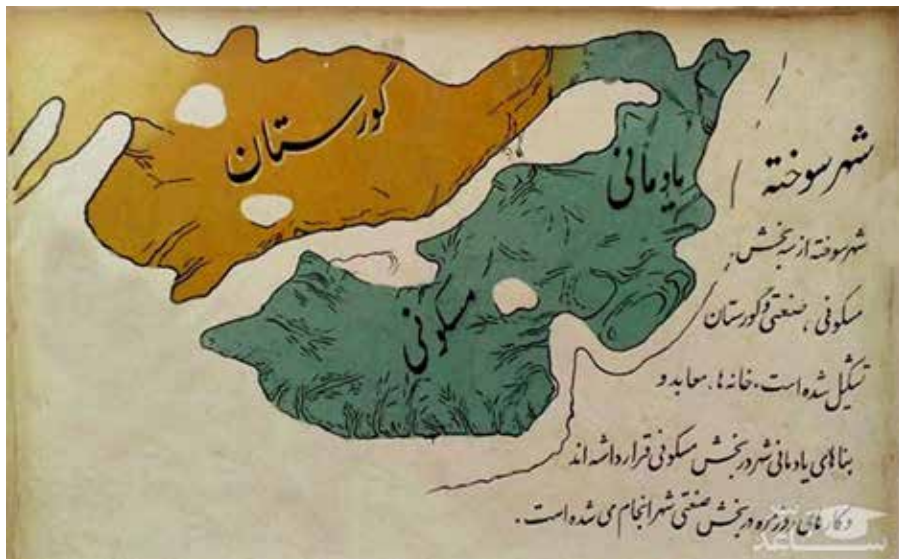 گورستان
یادمانی
مسکونی
شهر سوخته
شهر سوخته از سه بخش
مسکونی، صنعتی و گورستان
تشکیل شده است. خانه ها، معابد و
بناهای یادمانی شهر در بخش مسکونی قرار داشته اند
و کارهای روزمره در بخش صنعتی شهر انجام می شده است.
ساعد